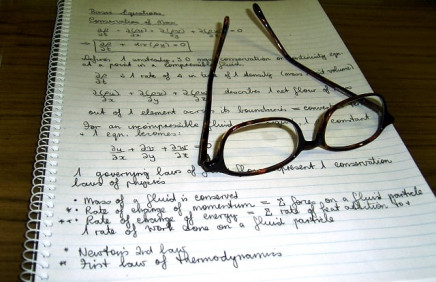 Conservation of Mass
∂ρ/∂t + ∂(ρu)/∂x + ∂(ρv)/∂y + ∂(ρw)/∂z = 0
⇒ ∂ρ/∂t + div(ρu) = 0
unsteady, 3D mass conservation continuity eqn
a point in a compressible fluid.
∂ρ/∂t is rate of Δ in time of density (mass/unit volume)
∂(ρu)/∂x + ∂(ρv)/∂y + ∂(ρw)/∂z describes net flow of
out of element across its boundaries = convective
For an incompressible fluid constant
eqn. becomes:
∂u/∂x + ∂v/∂y + ∂w/∂z
governing laws of flow represent conservation
laws of physics
• Mass of a fluid is conserved
•• Rate of change of momentum = Σ forces on a fluid particle
••• Rate of change of energy = Σ rate of heat addition to +
rate of work done on a fluid particle
* Newton's 2nd law
** First law of thermodynamics